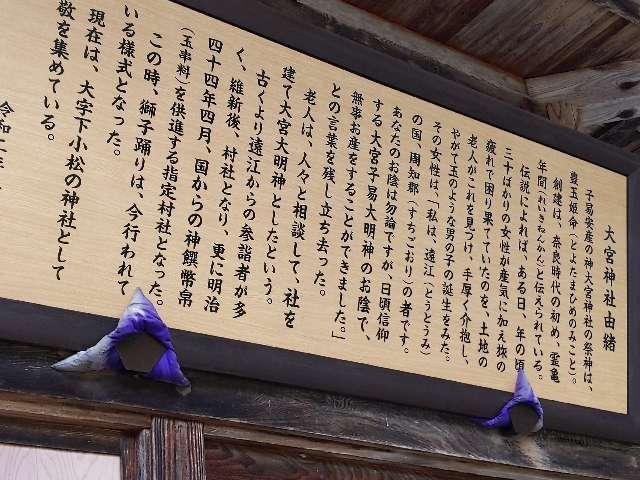 大宮神社由緒
子易安産の神大宮神社の祭神は、
豊玉姫命(とよたまひめのみこと)。
創建は、奈良時代の初め、霊亀
年間(れいきねんかん)と伝えられている。
伝説によれば、ある日、年の頃
三十ばかりの女性が産気に加え旅の
疲れで困り果てていたのを、土地の
老人がこれを見つけ、手厚く介抱し、
やがて玉のような男の子の誕生をみた。
その女性は、「私は、遠江(とうとうみ)
の国、周知郡(すちごおり)の者です。
あなたのお陰は勿論ですが、日頃信仰
する大宮子易大明神のお陰で、
無事お産をすることができました。」
との言葉を残し立ち去った。
老人は、人々と相談して、社を
建て大宮大明神としたという。
古くより遠江からの参詣者が多
く、維新後、村社となり、更に明治
四十四年四月、国からの神饌幣帛
(玉串料)を供進する指定村社となった。
この時、獅子踊りは、今行われて
いる様式となった。
現在は、大字下小松の神社として
敬を集めている。
令和二年